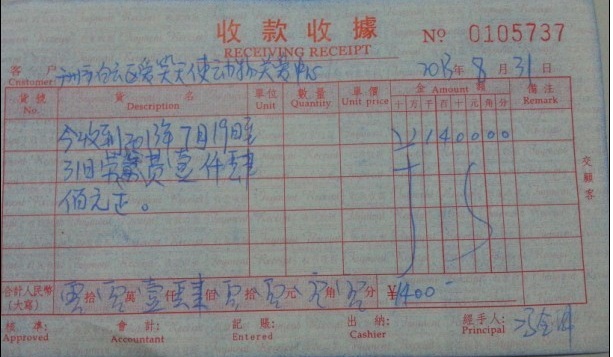 收款收據
RECEIVING RECEIPT
№ 0105737
客 户 Customer 广州市白云区爱笑天使动物关爱中心 2013年8月31日
貨號 No. 貨名 Description 單位 Unit 數量 Quantity 單價 Unit price 金額 Amount 備注 Remark
十 万 千 百 十 元 角 分
今收到2013年7月19日至 ¥140000
31日劳务费壹仟肆
佰元正。
交顧客
合計人民幣(大寫) 零拾零萬壹仟肆佰零拾零元零角零分 ¥1400
核准: Approved 會計: Accountant 記賬: Entered 出納: Cashier 經手人: Principal